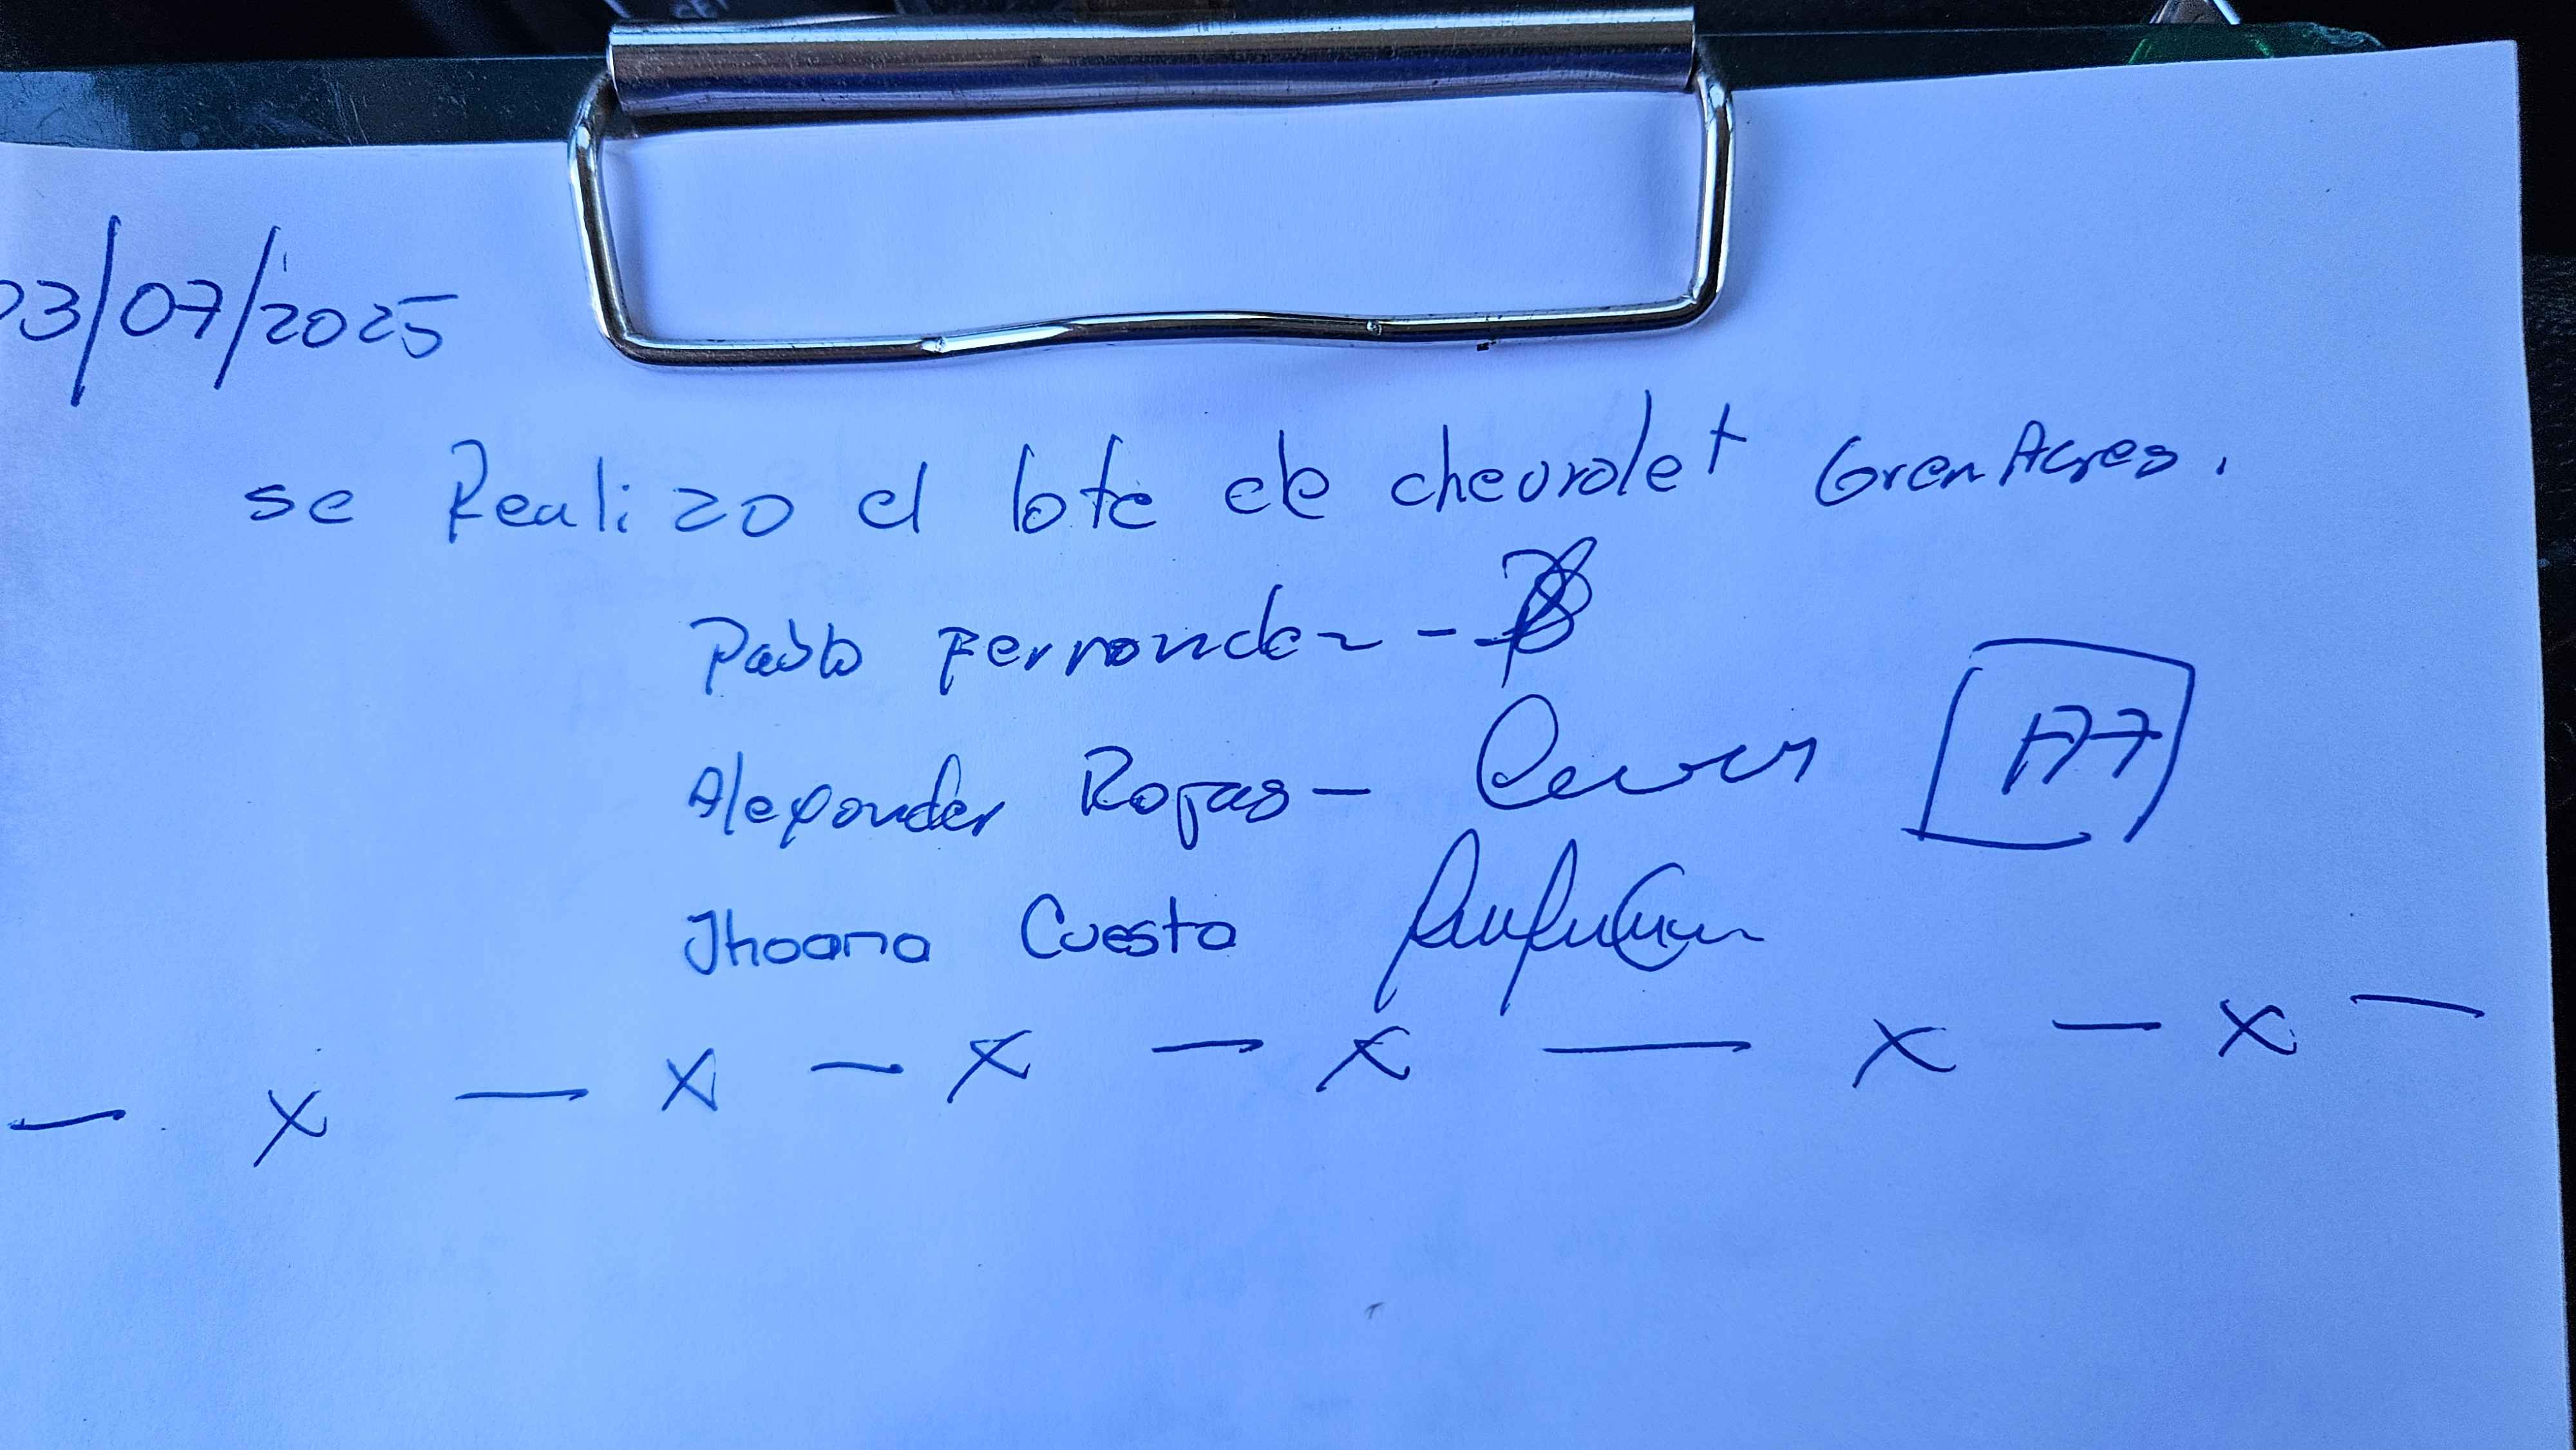 03/07/2025
se Realizo el lote de chevrolet GrenAcres.
Pablo Fernandez -
Alexander Rojas -
177
Jhoana Cuesta
- x - x - x - x - x - x -